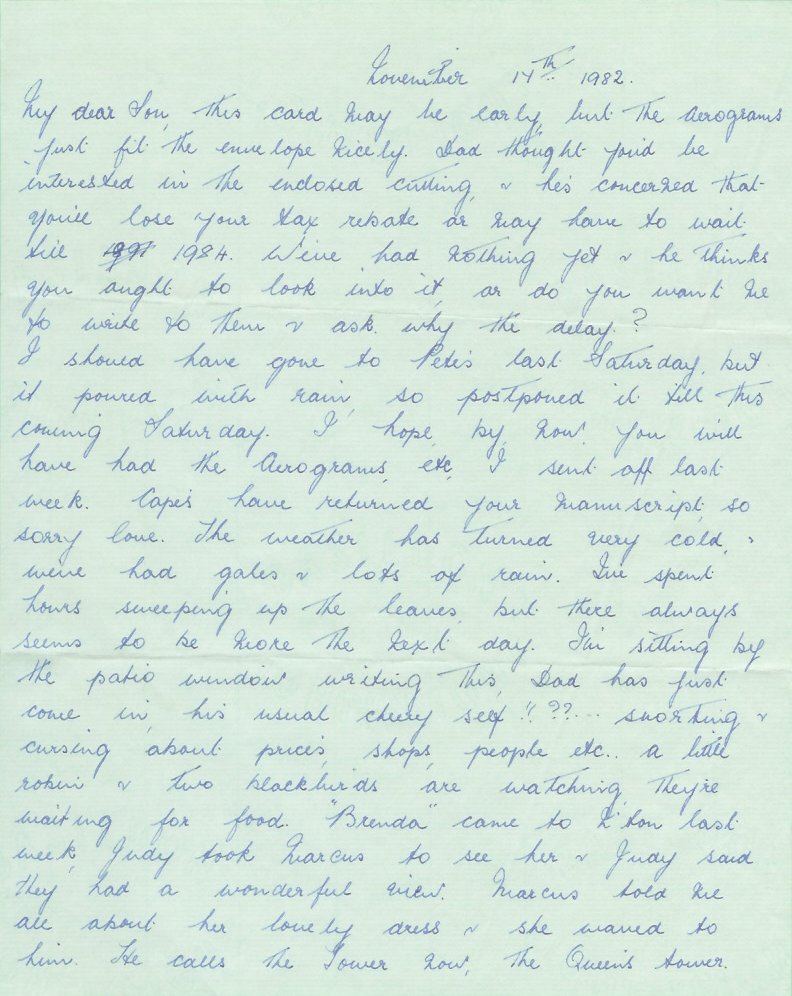 November 14th 1982.
My dear Son, this card may be early, but the aerograms
just fit the envelope nicely. Dad thought you'd be
interested in the enclosed cutting, & he's concerned that
you'll lose your tax rebate or may have to wait
till 1984. We've had nothing yet & he thinks
you aught to look into it, or do you want me
to write to them & ask why the delay?
I should have gone to Pete's last Saturday, but
it poured with rain, so postponed it till this
coming Saturday. I hope, by now, you will
have had the Aerograms, etc, I sent off last
week. Cape's have returned your manuscript, so
sorry love. The weather has turned very cold, &
we've had gales & lots of rain. I've spent
hours sweeping up the leaves, but there always
seems to be more the next day. I'm sitting by
the patio window writing this, Dad has just
come in, his usual cheery self!! ??... snorting &
cursing about prices, shops, people etc.. a little
robin & two blackbirds are watching, they're
waiting for food. "Brenda" came to L'ton last
week, Judy took Marcus to see her & Judy said
they had a wonderful view. Marcus told me
all about her lovely dress & she waved to
him. He calls the Tower now, the Queen's tower.